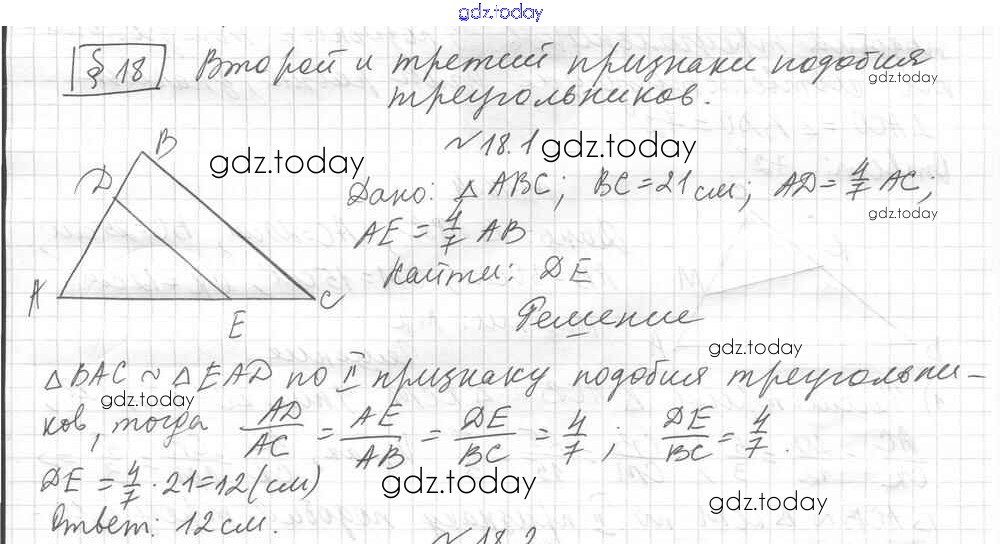 gdz.today
§ 18 Второй и третий признаки подобия
gdz.today
треугольников.
№ 18.1
gdz.today
gdz.today
B
D
A
E
C
Дано: △ ABC; BC = 21 см; AD = 4/7 AC;
gdz.today
AE = 4/7 AB
Найти: DE
Решение
gdz.today
△ BAC ~ △ EAD по II признаку подобия треугольни-
gdz.today
ков, тогда AD/AC = AE/AB = DE/BC = 4/7; DE/BC = 4/7.
DE = 4/7 · 21 = 12 (см)
gdz.today
gdz.today
Ответ: 12 см.
№ 18.2